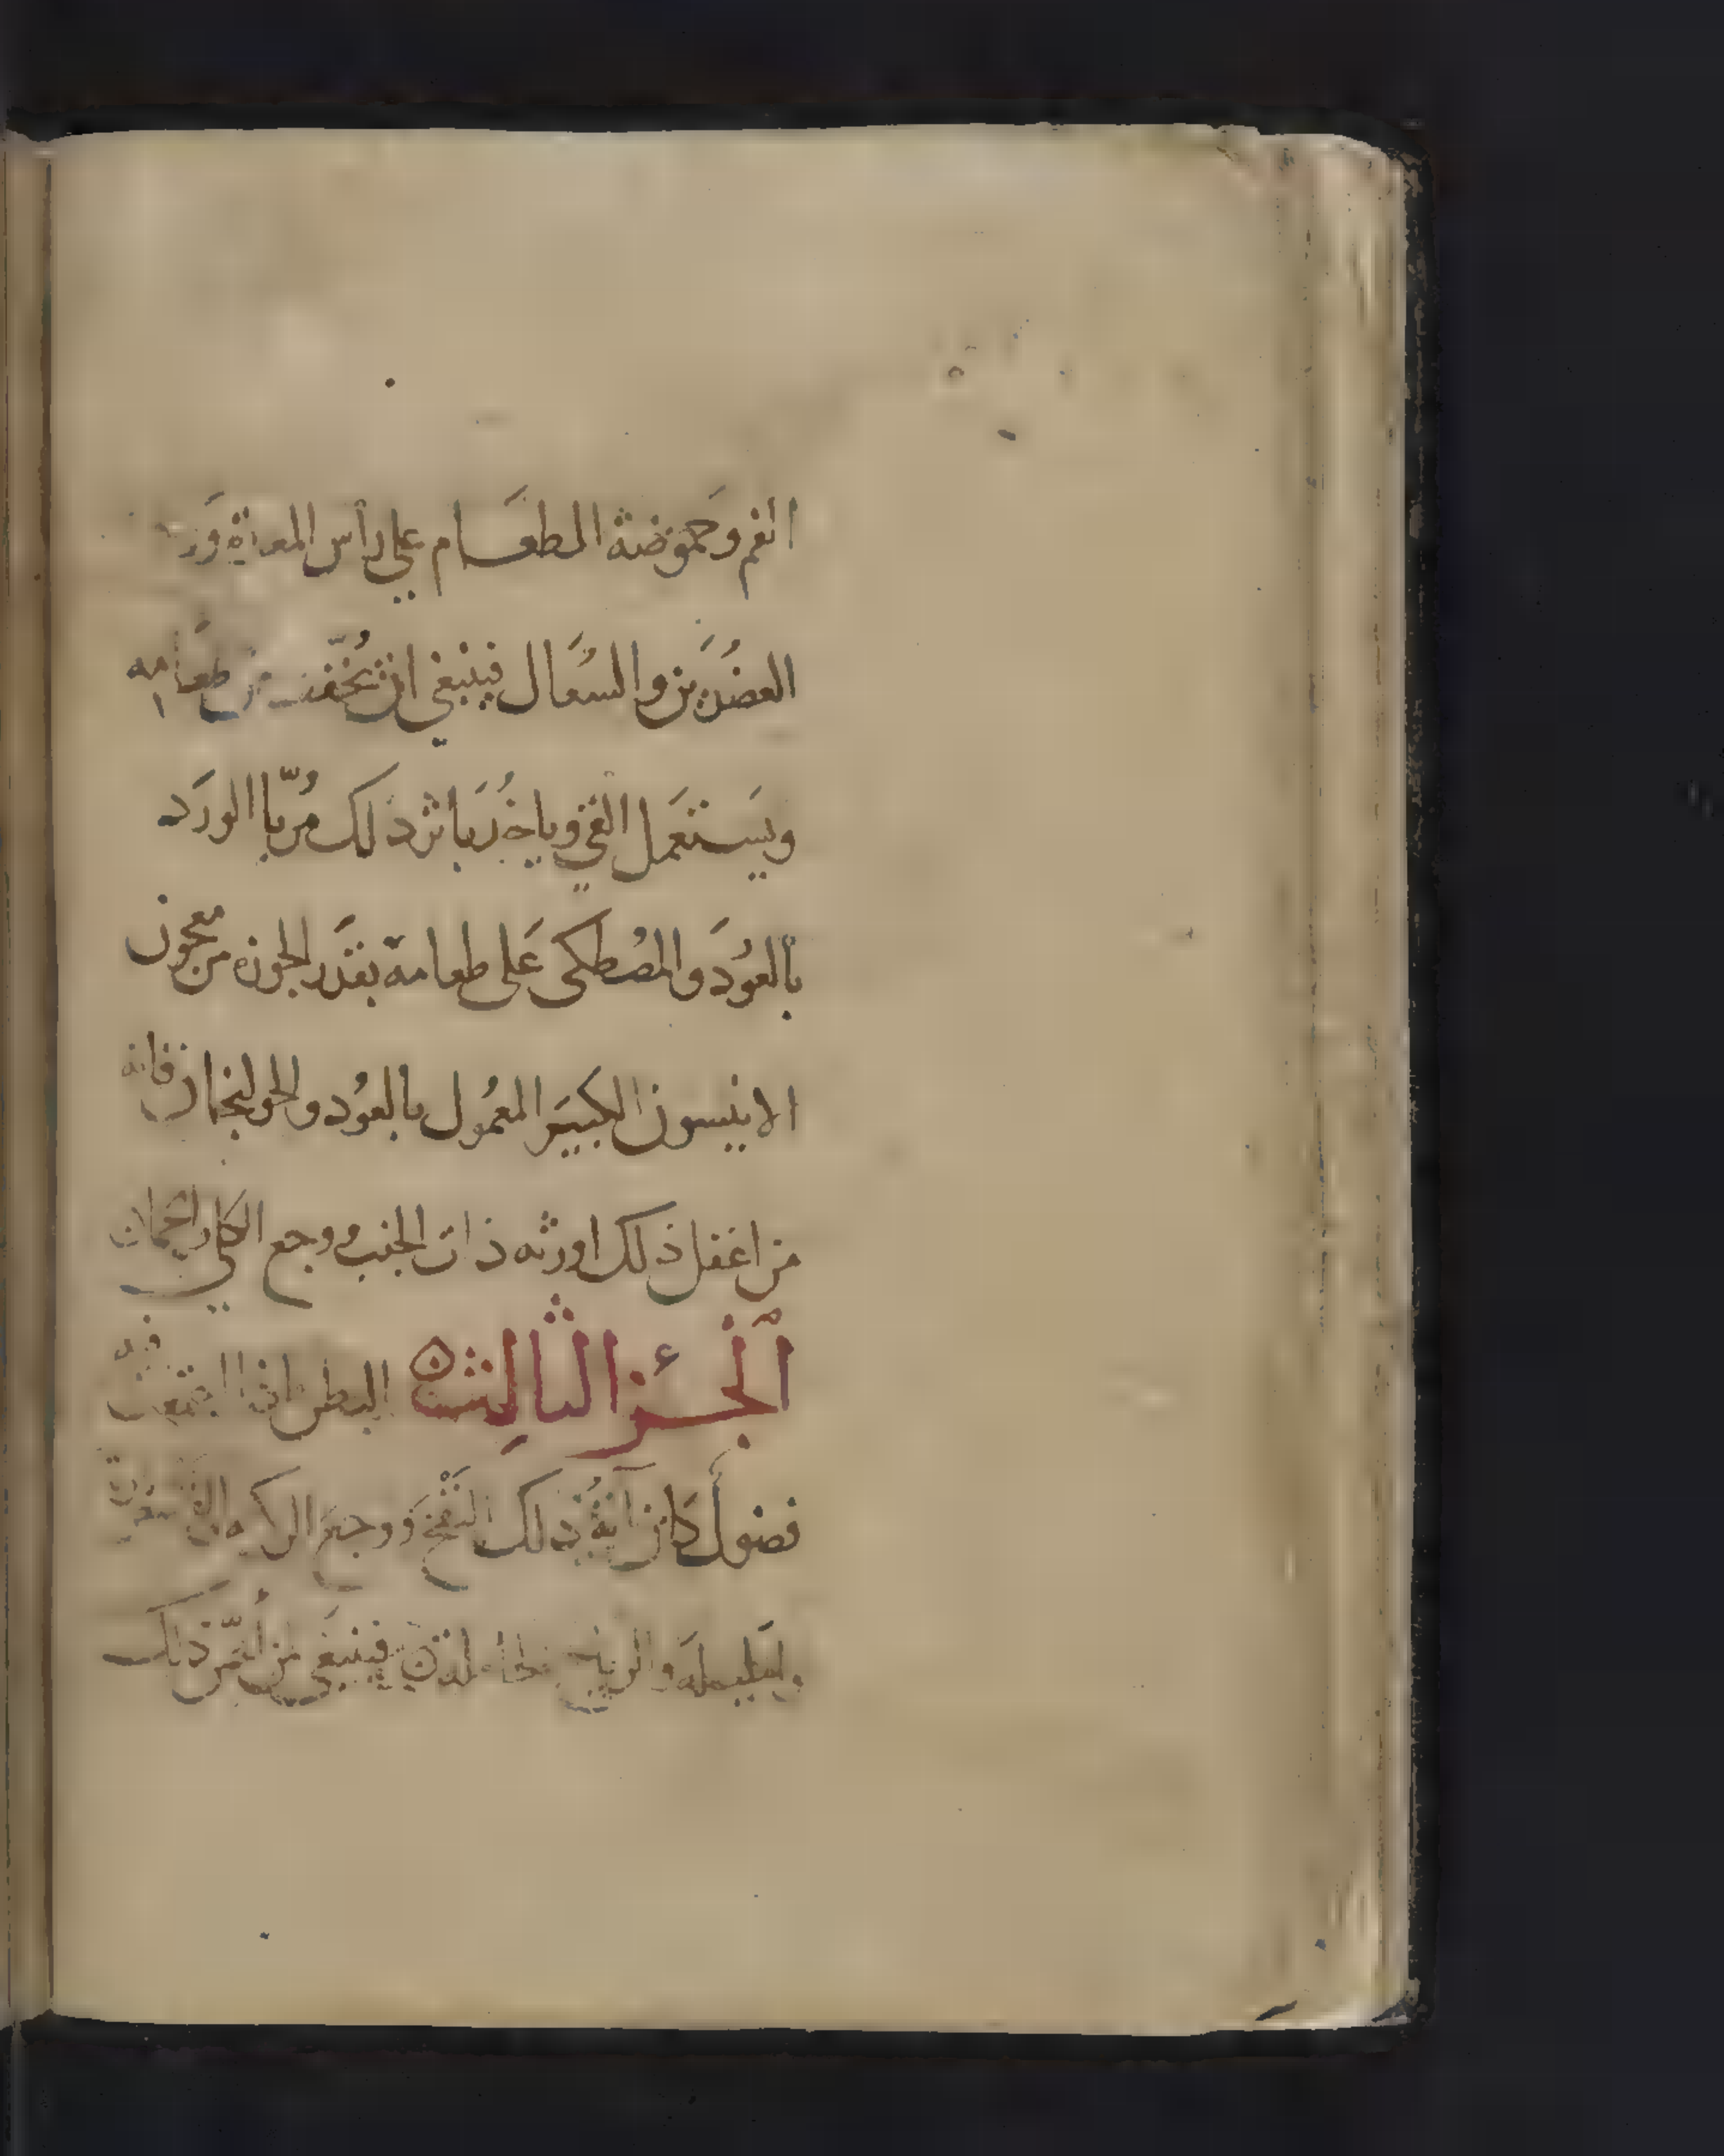 الفم وحموضة الطعَام علي راس المعدة
العضدين والسُعَال فينبغي ان يُخّفف من طعَامه
ويَستعَمل القي وياخُدَ باثر دلك مُربّا الورَد
بالعوُدَ والمصُطكى عَلى طعامه بقدَر الجوزه من معجون
الانيسون الكبيَر المعمُول بالعوُد والخولنجان فانه
من اغفل ذلك اورثه ذات الجنب ووجع الكلي
اَلجُـزء الثالِث البطن اذا اجتمعت فيه
فضُول كَان ايةُ ذلك النفْخ وَوجع الركبه
والريح فينبغَي لمن